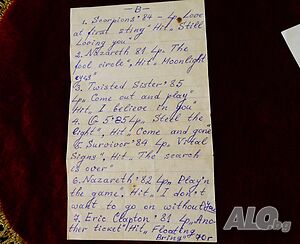 - B -
1. Scorpions '84 - Lp. Love
at first sting" Hit„ Still
Loving you"
2. Nazareth 81 Lp. The
fool circle", Hit„ Moonlight
eyes"
3. Twisted Sister '85
Lp„ Come out and play"
Hit„ I believe in you"
4. Q 5" 85 Lp„ Steel the
light", Hit„ Come and gone"
5. Survivor '84 Lp. Vital
Signs", Hit„ The search
is over"
6. Nazareth '82 Lp„ Play'n
the game", Hit„ I don't
want to go on without
7. Eric Clapton '81 Lp„ Ano
ther ticket" Hit„ Floating
Bring" 70г
ALO.bg